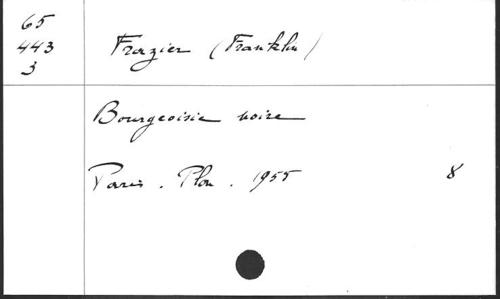 65
443
3
Frazier (Franklin)
Bourgeoisie noire
Paris. Plon. 1955 8